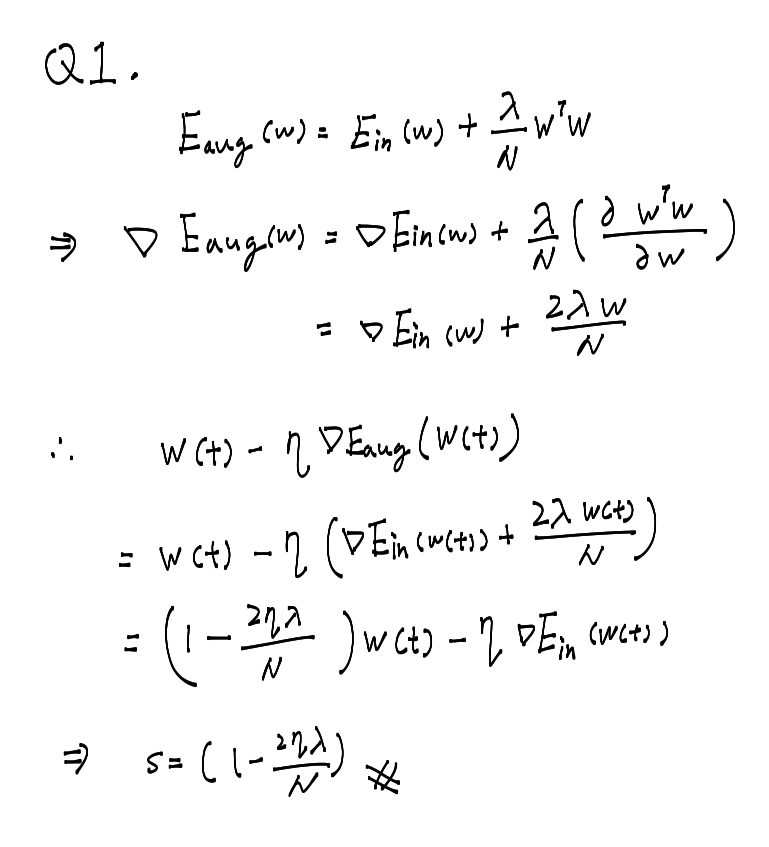 Q1.
E_aug (w) = E_in (w) + λ/N wᵀw
⇒ ∇ E_aug(w) = ∇E_in(w) + λ/N ( ∂ wᵀw / ∂w )
= ∇E_in (w) + 2λw/N
∴ w(t) - η ∇E_aug(w(t))
= w(t) - η (∇E_in(w(t)) + 2λw(t)/N)
= (1 - 2ηλ/N) w(t) - η ∇E_in (w(t))
⇒ s = (1 - 2ηλ/N) #